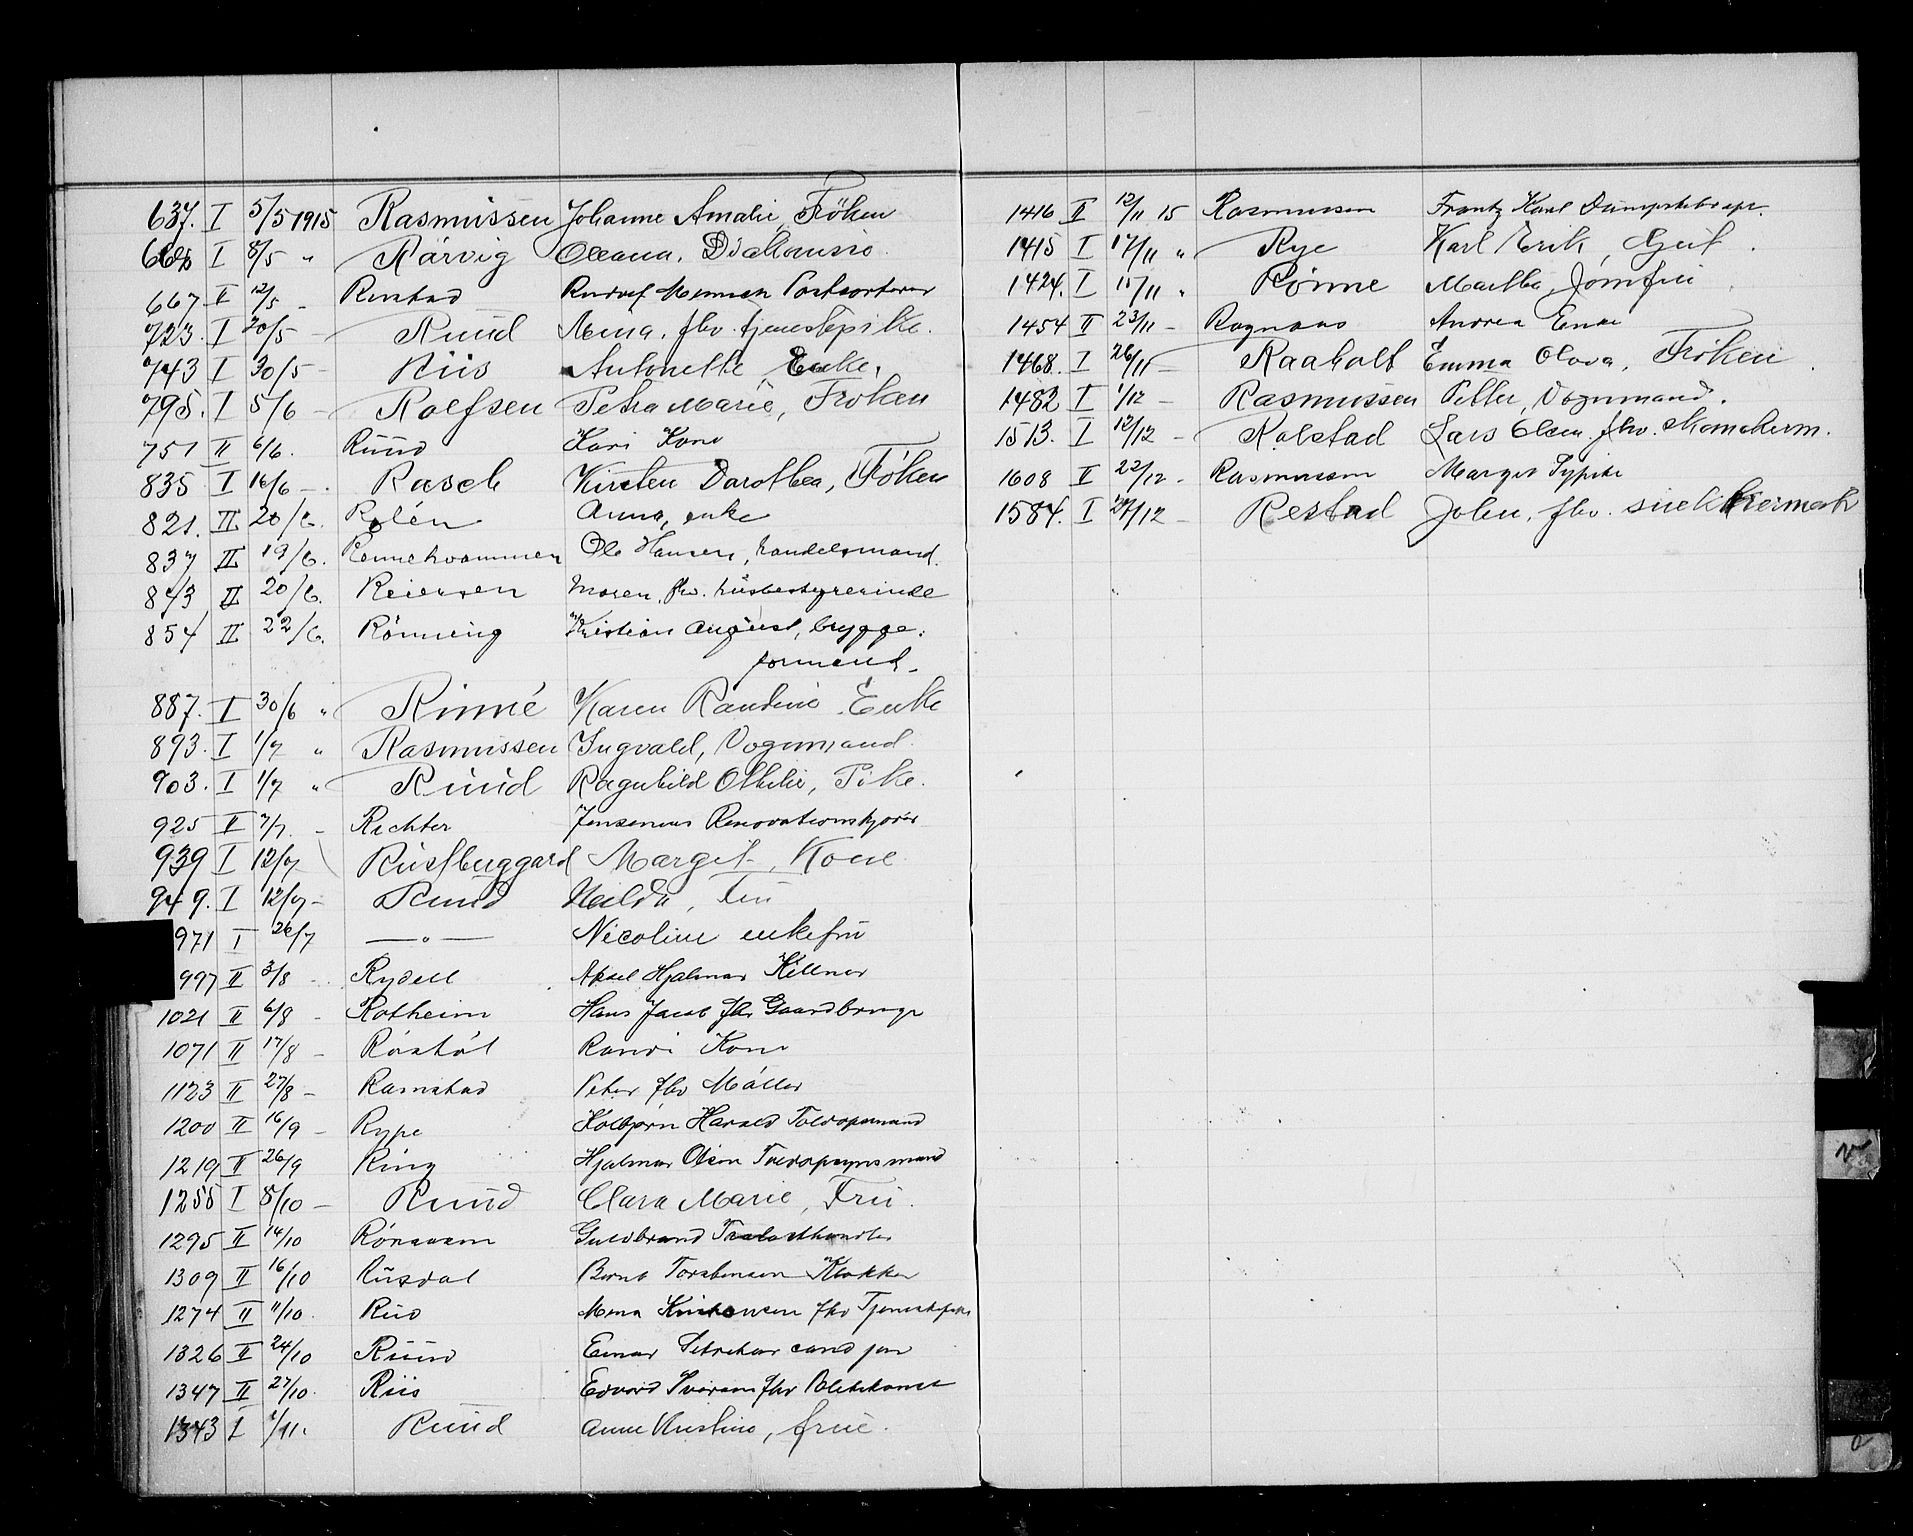 637. I 5/5 1915 Rasmussen Johanne Amalie, Fröken
I 8/5 " Rårvig Oleana, Diakonisse
667 II 12/5 - Rustad Rudolf Postsorterer
723. I 20/5 - Ruud Mina, fhv. tjenestepike.
743 I 30/5 - Riis Antonette, Enke.
795. I 5/6 - Rolfsen Petra Marie, Fröken
751 II 6/6. Ruud Kari Kone
835 I 16/6 - Rasch Kirsten Dorothea, Fröken
821. II 20/6. Rolén Anna, enke
837 II 19/6. Rennehvammen Ole Hansen, handelsmand.
843 II 20/6. Reiersen Maren, fhv. husbestyrerinde
854 II 22/6. Rönning Kristian August, brygge-
formand.
887. I 30/6 " Rinné Karen Randine Enke
893. I 1/7 " Rasmussen Ingvald, Vognmand.
903. I 1/7 " Ruud Ragnhild Othilie, Pike.
925 II 7/7. - Richter Renovationskjører
939 I 12/7 Rustbuggard Margit, Kone
949. I 12/7 - Ruud Hilda, Fru
971 I 26/7 — " — Nicoline enkefru
997 II 3/8 - Rydell Aksel Hjalmar Kellner
1021 II 6/8 - Rotheim Hans Jacob fhv Gaardbruger
1071 II 17/8 - Röistöl Randi Kone
1123 II 27/8 - Ramstad Peter fhv Möller
1200 II 16/9 - Rype Kolbjørn Harald Toldopsmand
1219 II 26/9 Ring Hjalmar Olsen Toldopsynsmand
1255 I 8/10 - Ruud Clara Marie, Fru.
1295 II 14/10 Rönaasen Guldbrand Trælasthandler
1309 II 16/10 Rusdal Bernt Torstensen Klokker
1274 II 11/10. Rud Mina fhv Tjenestepike
1326 II 24/10 Ruud Einar Sekretær cand jur
1347 II 27/10. Riis Edvard fhv Politikonst
1343 I 1/11. Ruud Anne Kristine, frue.
1416 II 12/11 15 Rasmussen Frantz Karl Dampskibsexp.
1415 I 17/11 " Rye Karl Erik, Gut.
1424. I 15/11 " Rönne Martha, Jomfru
1454 II 23/11 - Ragnaas Andrea Enke
1468. I 26/11 - Raaholt Emma Olava, Fröken
1482 I 1/12 - Rasmussen Petter, Vognmand.
1513. I 12/12 - Rolstad Lars Olsen. fhv. skomakerm.
1608 II 22/12 - Rasmussen Margit Sypike
1584. I 27/12 - Restad John, fhv.
v